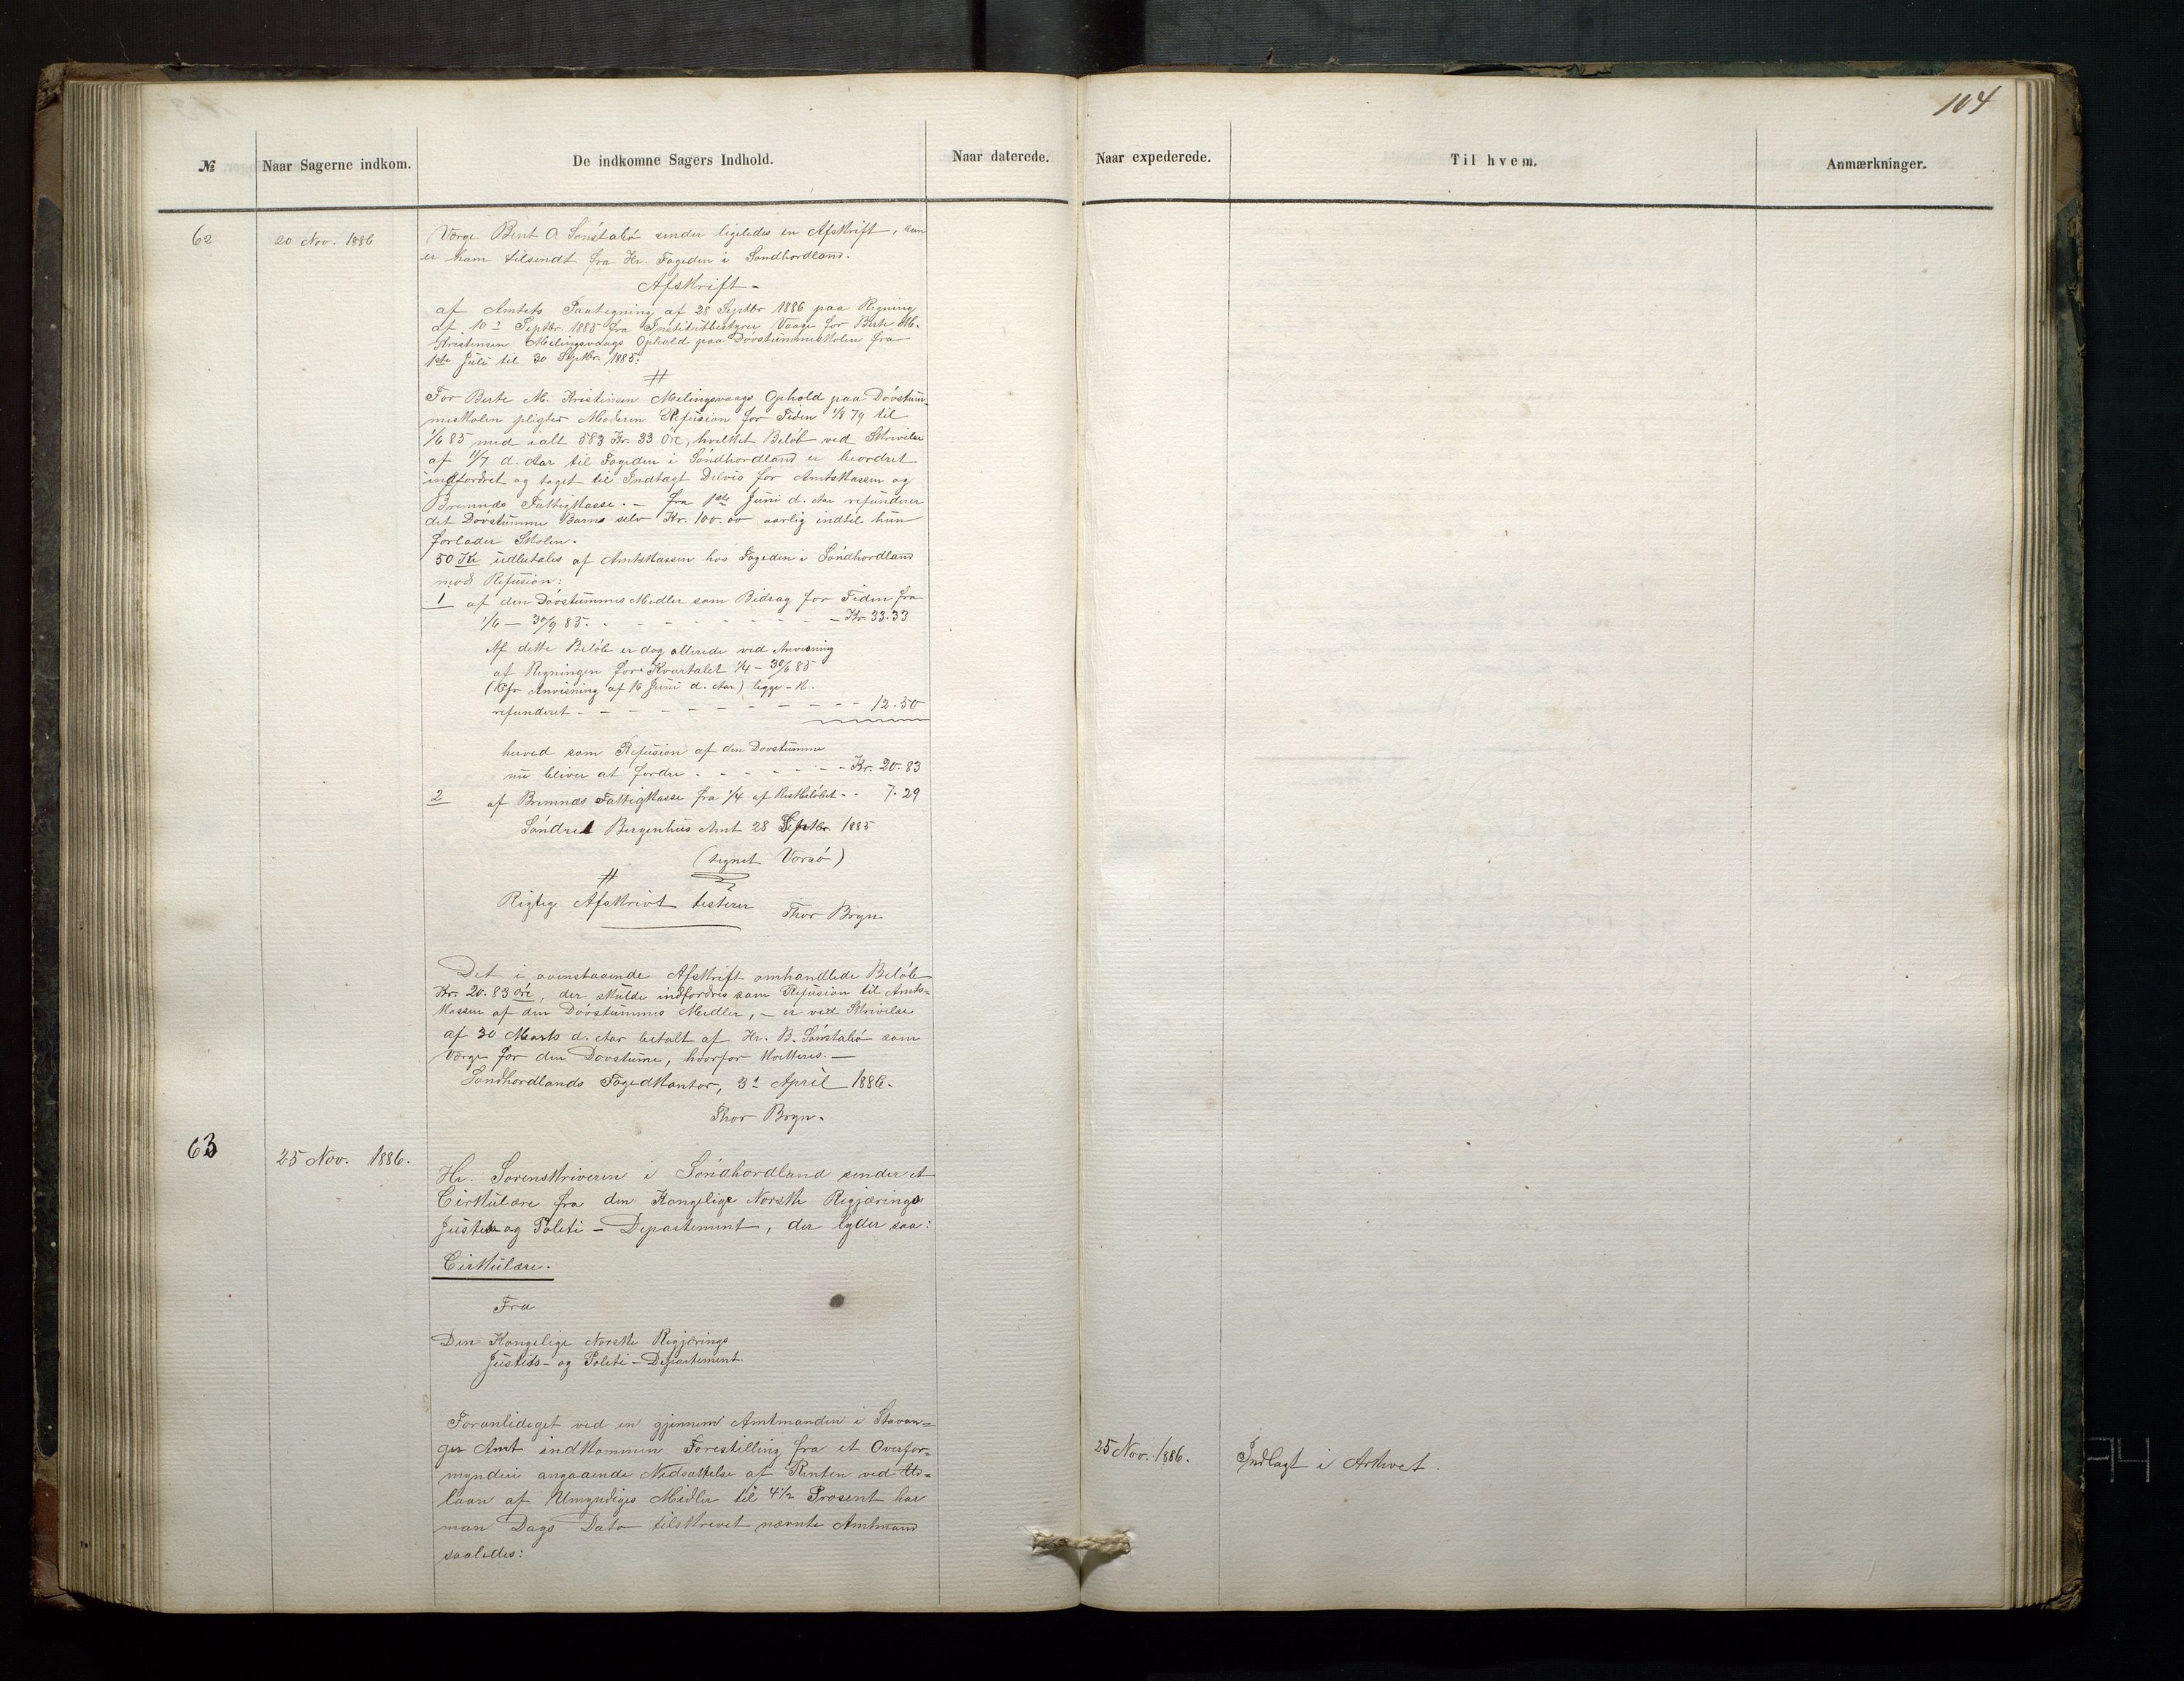 104
№ Naar Sagerne indkom. De indkomne Sagers Indhold. Naar daterede. Naar expederede. Til hvem. Anmærkninger.
62 20 Nov. 1886 Værge Bent O Sønstabø sender ligeledes en Afskrift, som
er ham tilsendt fra Hr. Fogeden i Søndhordland.
Afskrift-
af Amtets Paategning af 28 Septbr 1886 paa Regning
af 10 Septbr 1885 fra Institutbestyrer Vaage for Berte M.
Kristensen Melingsvaags Ophold paa Døvstummeskolen fra
1ste Juli til 30 Septbr. 1885:
#
For Berte M. Kristensen Melingsvaags Ophold paa Døvstum-
meskolen pligter Moderen Refusion for Tiden 1/8 79 til
1/6 85 med ialt 583 Kr. 33 Øre, hvilket Beløb ved Skrivelse
af 11/7 d. Aar til Fogeden i Søndhordland er beordret
indfordret og taget til Indtægt Delvis for Amtskassen og
Bremnes Fattigkasse. - fra 1ste Juni d. Aar refunderer
det Døvstumme Barns selv Kr. 100.00 aarlig indtil hun
forlader Skolen.
50 Kr udbetales af Amtskassen hos Fogeden i Søndhordland
mod Refusion:
1 af den Døvstummes Midler som Bidrag for Tiden fra
1/6 - 30/9 85. - - - - - - - - Kr. 33.33
Af dette Beløb er dog allerede ved Anvisning
af Regningen for Kvartalet 1/4 - 30/6 85
(Cfr Anvisning af 16 Juni d. Aar)
refunderet - - - - - - - - - - 12.50
herved som Refusion af den Døvstumme
nu bliver at fordre - - - - - - Kr. 20.83
2 af Bremnes Fattigkasse fra 1/4 af - - 7.29
Søndre Bergenhus Amt 28 Septbr. 1885
(signet Vorsø)
#
Rigtig Afskrivt testerer Thor Bryn
Det i ovenstaaende Afskrift omhandlede Beløb
Kr. 20.83 Øre, der skulde indfordres som Refusion til Amts=
kassen af den Døvstummes Midler, - er ved Skrivelse
af 30 Marts d. Aar betalt af Hr. B. Sønstabø som
Værge for den Døvstumme, hvorfor kvitteres. -
Søndhordlands Fogedkontor, 3 April 1886.
Thor Bryn.
63 25 Nov. 1886. Hr. Sorenskriveren i Søndhordland sender et
Cirkulære fra den Kongelige Norske Regjærings
Justits og Politi - Departement, der lyder saa:
Cirkulære.
Fra
Den Kongelige Norske Regjærings
Justits- og Politi - Departement.
Foranlediget ved en gjennem Amtmanden i Stavan=
ger Amt indkommen Forestilling fra et Overfor=
mynderi angaaende Nedsættelse af Renten ved Ud=
laan af Umyndiges Midler til 4 1/2 Prosent har
man Dags Dato tilskrevet nævnte Amtmand
saaledes:
25 Nov. 1886. Indlagt i Arkivet.